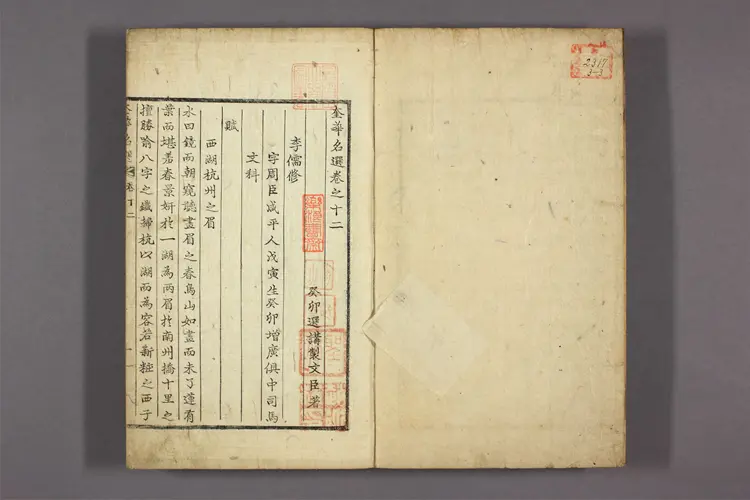 2317
3-3
奎華名選卷之十二
癸卯選講製文臣著
李儒修
字周臣咸平人戊寅生癸卯增廣俱中司馬
文科
賦
西湖杭州之眉
水曰鏡而朝窺聽畫眉之春鳥山如畫而未了蓮有
葉而堪羞春景妍於一湖為兩眉於南州橋十里之
擅勝喻八字之纖掃杭以湖而為容若新粧之西子